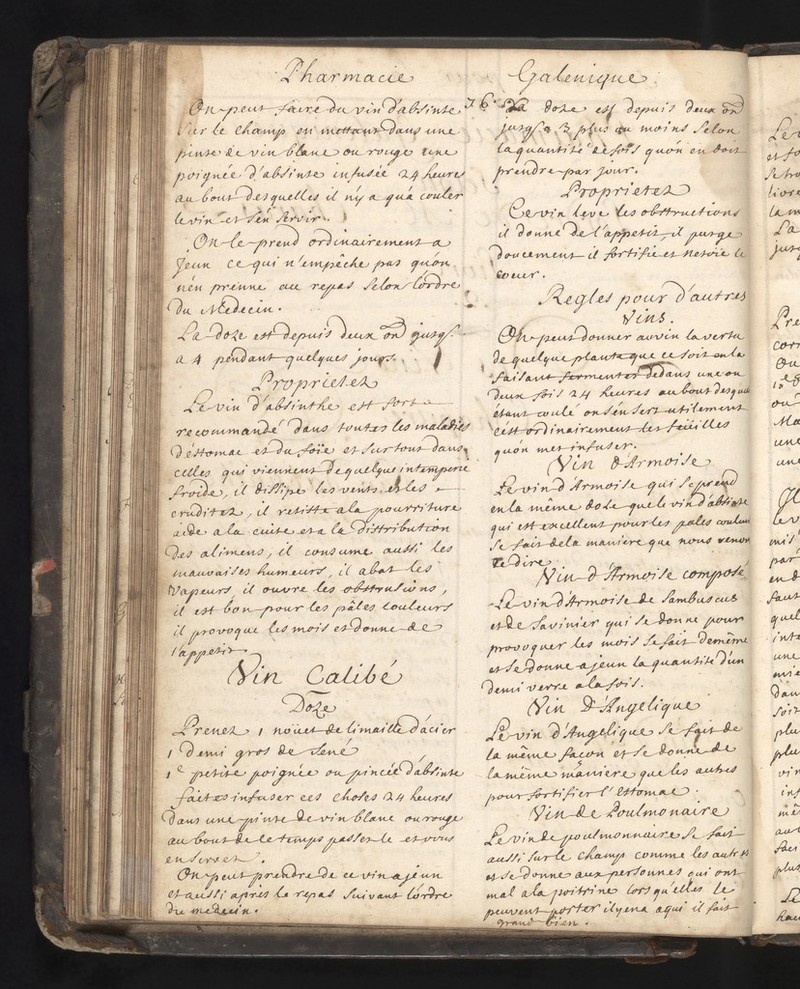 Pharmacie
On peut faire du vin d'absinte
sur le champ en mettant dans une
pinte de vin blanc ou rouge une
poignée d'absinte infusée 24 heures
au bout desquelles il n'y a qu'a couler
le vin et s'en servir.
On le prend ordinairement a
jeun ce qui n'empêche pas qu'on
n'en prenne au repas selon l'ordre
du Medecin.
La doze est depuis deux on jusq.
a 4 pendant quelques jours.
Proprietez
Le vin d'absinthe est fort
recommandé dans toutes les maladies
d'estomac et du foïe et surtout dans
celles qui viennent de quelque intemperie
froide, il dissipe les vents et les
cruditez, il resiste a la pourriture
aide a la cuite et a la distribution
des alimens, il consume aussi les
mauvaises humeurs, il abat les
vapeurs, il ouvre les obstrusions,
il est bon pour les pâles couleurs
il provoque les mois et donne de
l'appetit.
Vin Calibé
Doze
Prenez 1 noüet de limaille d'acier
1 demi gros de sené
1e petite poignée ou pincée d'absinte
faites infuser ces choses 24 heures
dans une pinte de vin blanc ou rouge
au bout de ce temps passez le et vous
en servez.
On peut prendre de ce vin a jeun
et aussi après le repas suivant l'ordre
du medecin.
76.
Galenique
La doze est depuis deux on
jusq. a 3 plus ou moins selon
la quantité de fois qu'on en doit
prendre par jour.
Proprietez
Ce vin leve les obstructions
il donne de l'appetit, il purge
doucement il fortifie et netoie le
coeur.
Regles pour d'autres
Vins.
On peut donner au vin la vertu
de quelque plante que ce soit en la
faisant fermenter dedans une ou
deux fois 24 heures au bout desquel
étant coulé on s'en sert utilement
c'est ordinairement les feüilles
qu'on met infuser.
Vin d'Armoise
Le vin d'Armoise qui se prend
en la même doze que le vin d'absinte
qui est excellent pour les pales couleurs
se fait de la maniere que nous venons
de dire.
Vin d'Armoise composé
Le vin d'Armoise de Sambuscus
et de Savinier qui se donne pour
provoquer les mois se fait de même
et se donne a jeun la quantité d'un
demi verre a la fois.
Vin d'Angelique
Le vin d'Angelique se fait de
la même façon et se donne de
la même maniere que les autres
pour fortifier l'estomac.
Vin de Poulmonaire
Le vin de poulmonnaire se fait
aussi sur le champ comme les autres
et se donne aux personnes qui ont
mal a la poitrine lors qu'elles le
peuvent porter il y en a a qui il fait
grand bien.